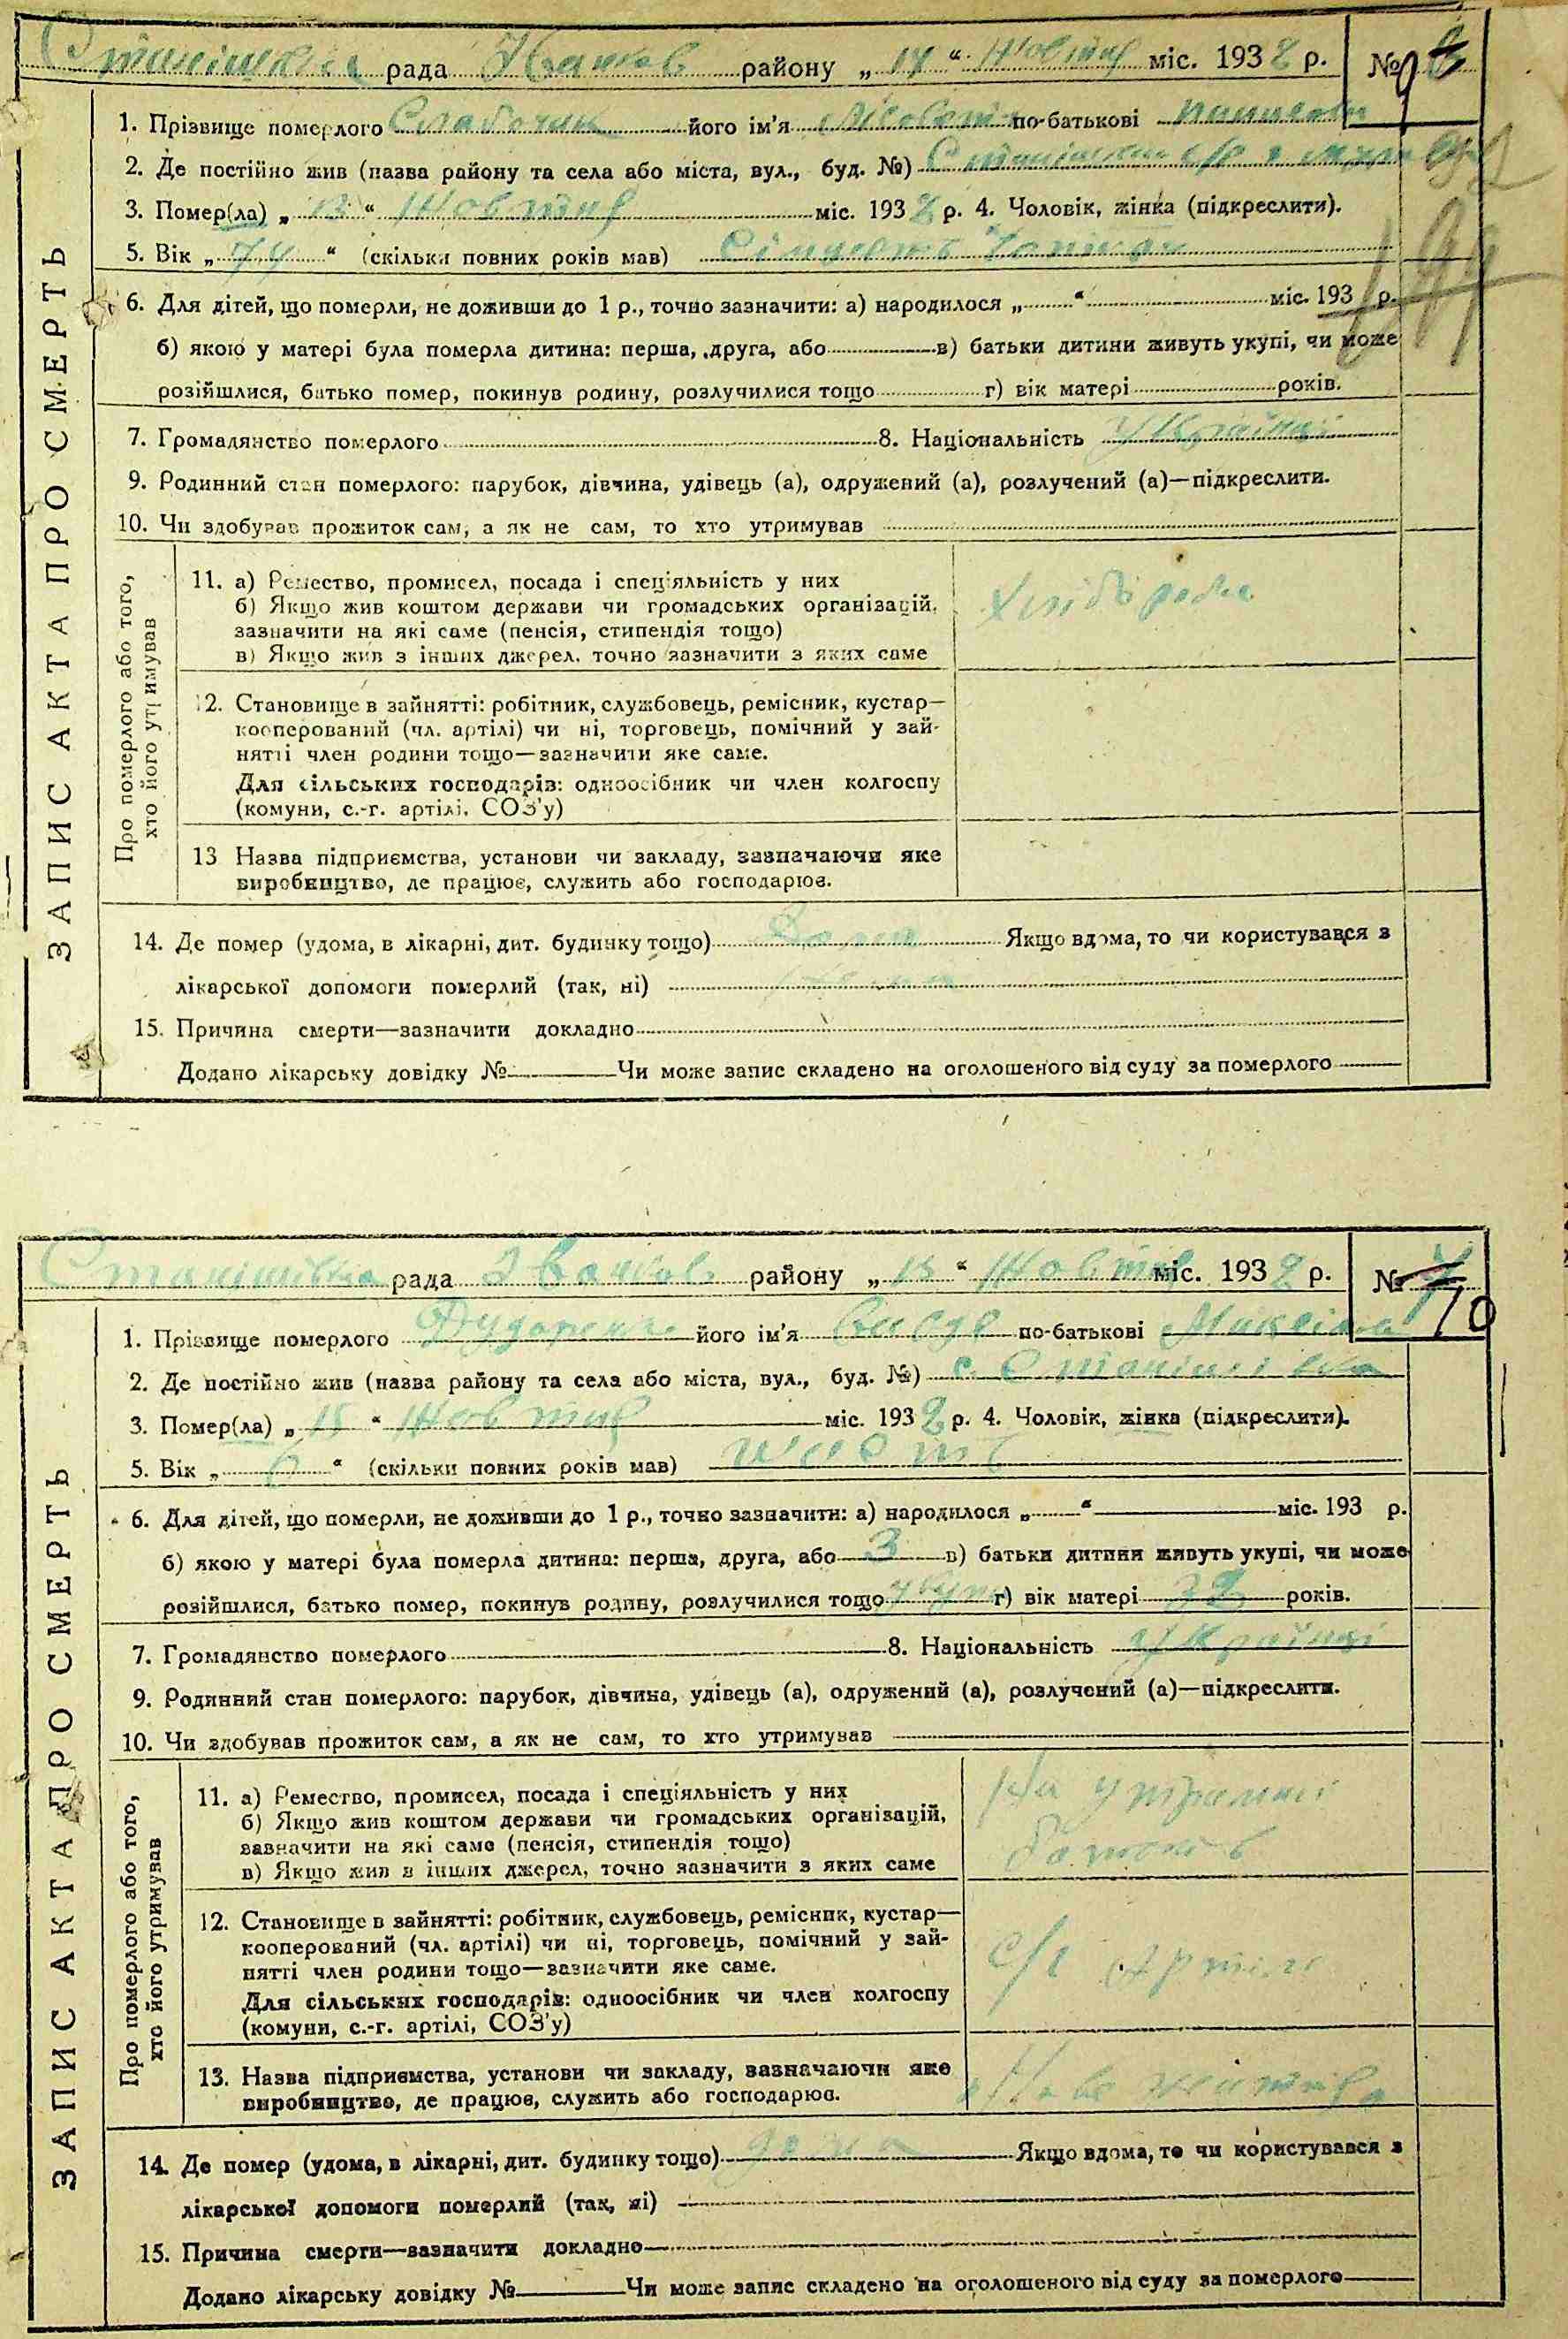 Станішівка рада Іванков району „ 14 “ Жовтня міс. 1932 р. №
1. Прізвище померлого його ім'я по-батькові
2. Де постійно жив (назва району та села або міста, вул., буд. №)
3. Помер(ла) „ 13 “ Жовтня міс. 1932 р. 4. Чоловік, жінка (підкреслити).
5. Вік „ 74 “ (скільки повних років мав)
6. Для дітей, що померли, не доживши до 1 р., точно зазначити: а) народилося „ “ міс. 193 р.
б) якою у матері була померла дитина: перша, друга, або в) батьки дитини живуть укупі, чи може
розійшлися, батько помер, покинув родину, розлучилися тощо г) вік матері років.
7. Громадянство померлого 8. Національність Україн
9. Родинний стан померлого: парубок, дівчина, удівець (а), одружений (а), розлучений (а)—підкреслити.
10. Чи здобував прожиток сам, а як не сам, то хто утримував
ЗАПИС АКТА ПРО СМЕРТЬ
Про померлого або того,
хто його утримував
11. а) Ремество, промисел, посада і спеціяльність у них
б) Якщо жив коштом держави чи громадських організацій,
зазначити на які саме (пенсія, стипендія тощо)
в) Якщо жив з інших джерел, точно зазначити з яких саме
Хліборобка
12. Становище в зайнятті: робітник, службовець, ремісник, кустар—
кооперований (чл. артілі) чи ні, торговець, помічний у зай-
нятті член родини тощо—зазначити яке саме.
Для сільських господарів: одноосібник чи член колгоспу
(комуни, с.-г. артілі, СОЗ'у)
13 Назва підприємства, установи чи закладу, зазначаючи яке
виробництво, де працює, служить або господарює.
14. Де помер (удома, в лікарні, дит. будинку тощо) Дома Якщо вдома, то чи користувався з
лікарської допомоги померлий (так, ні)
15. Причина смерти—зазначити докладно
Додано лікарську довідку № Чи може запис складено на оголошеного від суду за померлого
Станішівка рада Іванков району „ 15 “ Жовтня міс. 1932 р. № 10
1. Прізвище померлого його ім'я по-батькові
2. Де постійно жив (назва району та села або міста, вул., буд. №) с. Станішівка
3. Помер(ла) „ 15 “ Жовтня міс. 1932 р. 4. Чоловік, жінка (підкреслити).
5. Вік „ 6 “ (скільки повних років мав) шість
6. Для дітей, що померли, не доживши до 1 р., точно зазначити: а) народилося „ “ міс. 193 р.
б) якою у матері була померла дитина: перша, друга, або 3 в) батьки дитини живуть укупі, чи може
розійшлися, батько помер, покинув родину, розлучилися тощо укупі г) вік матері 32 років.
7. Громадянство померлого 8. Національність Україн
9. Родинний стан померлого: парубок, дівчина, удівець (а), одружений (а), розлучений (а)—підкреслити.
10. Чи здобував прожиток сам, а як не сам, то хто утримував
ЗАПИС АКТА ПРО СМЕРТЬ
Про померлого або того,
хто його утримував
11. а) Ремество, промисел, посада і спеціяльність у них
б) Якщо жив коштом держави чи громадських організацій,
зазначити на які саме (пенсія, стипендія тощо)
в) Якщо жив з інших джерел, точно зазначити з яких саме
На утриманні
батьків
12. Становище в зайнятті: робітник, службовець, ремісник, кустар—
кооперований (чл. артілі) чи ні, торговець, помічний у зай-
нятті член родини тощо—зазначити яке саме.
Для сільських господарів: одноосібник чи член колгоспу
(комуни, с.-г. артілі, СОЗ'у)
с/г артіль
13. Назва підприємства, установи чи закладу, зазначаючи яке
виробництво, де працює, служить або господарює.
Нове життя
14. Де помер (удома, в лікарні, дит. будинку тощо) дома Якщо вдома, то чи користувався з
лікарської допомоги померлий (так, ні)
15. Причина смерти—зазначити докладно
Додано лікарську довідку № Чи може запис складено на оголошеного від суду за померлого